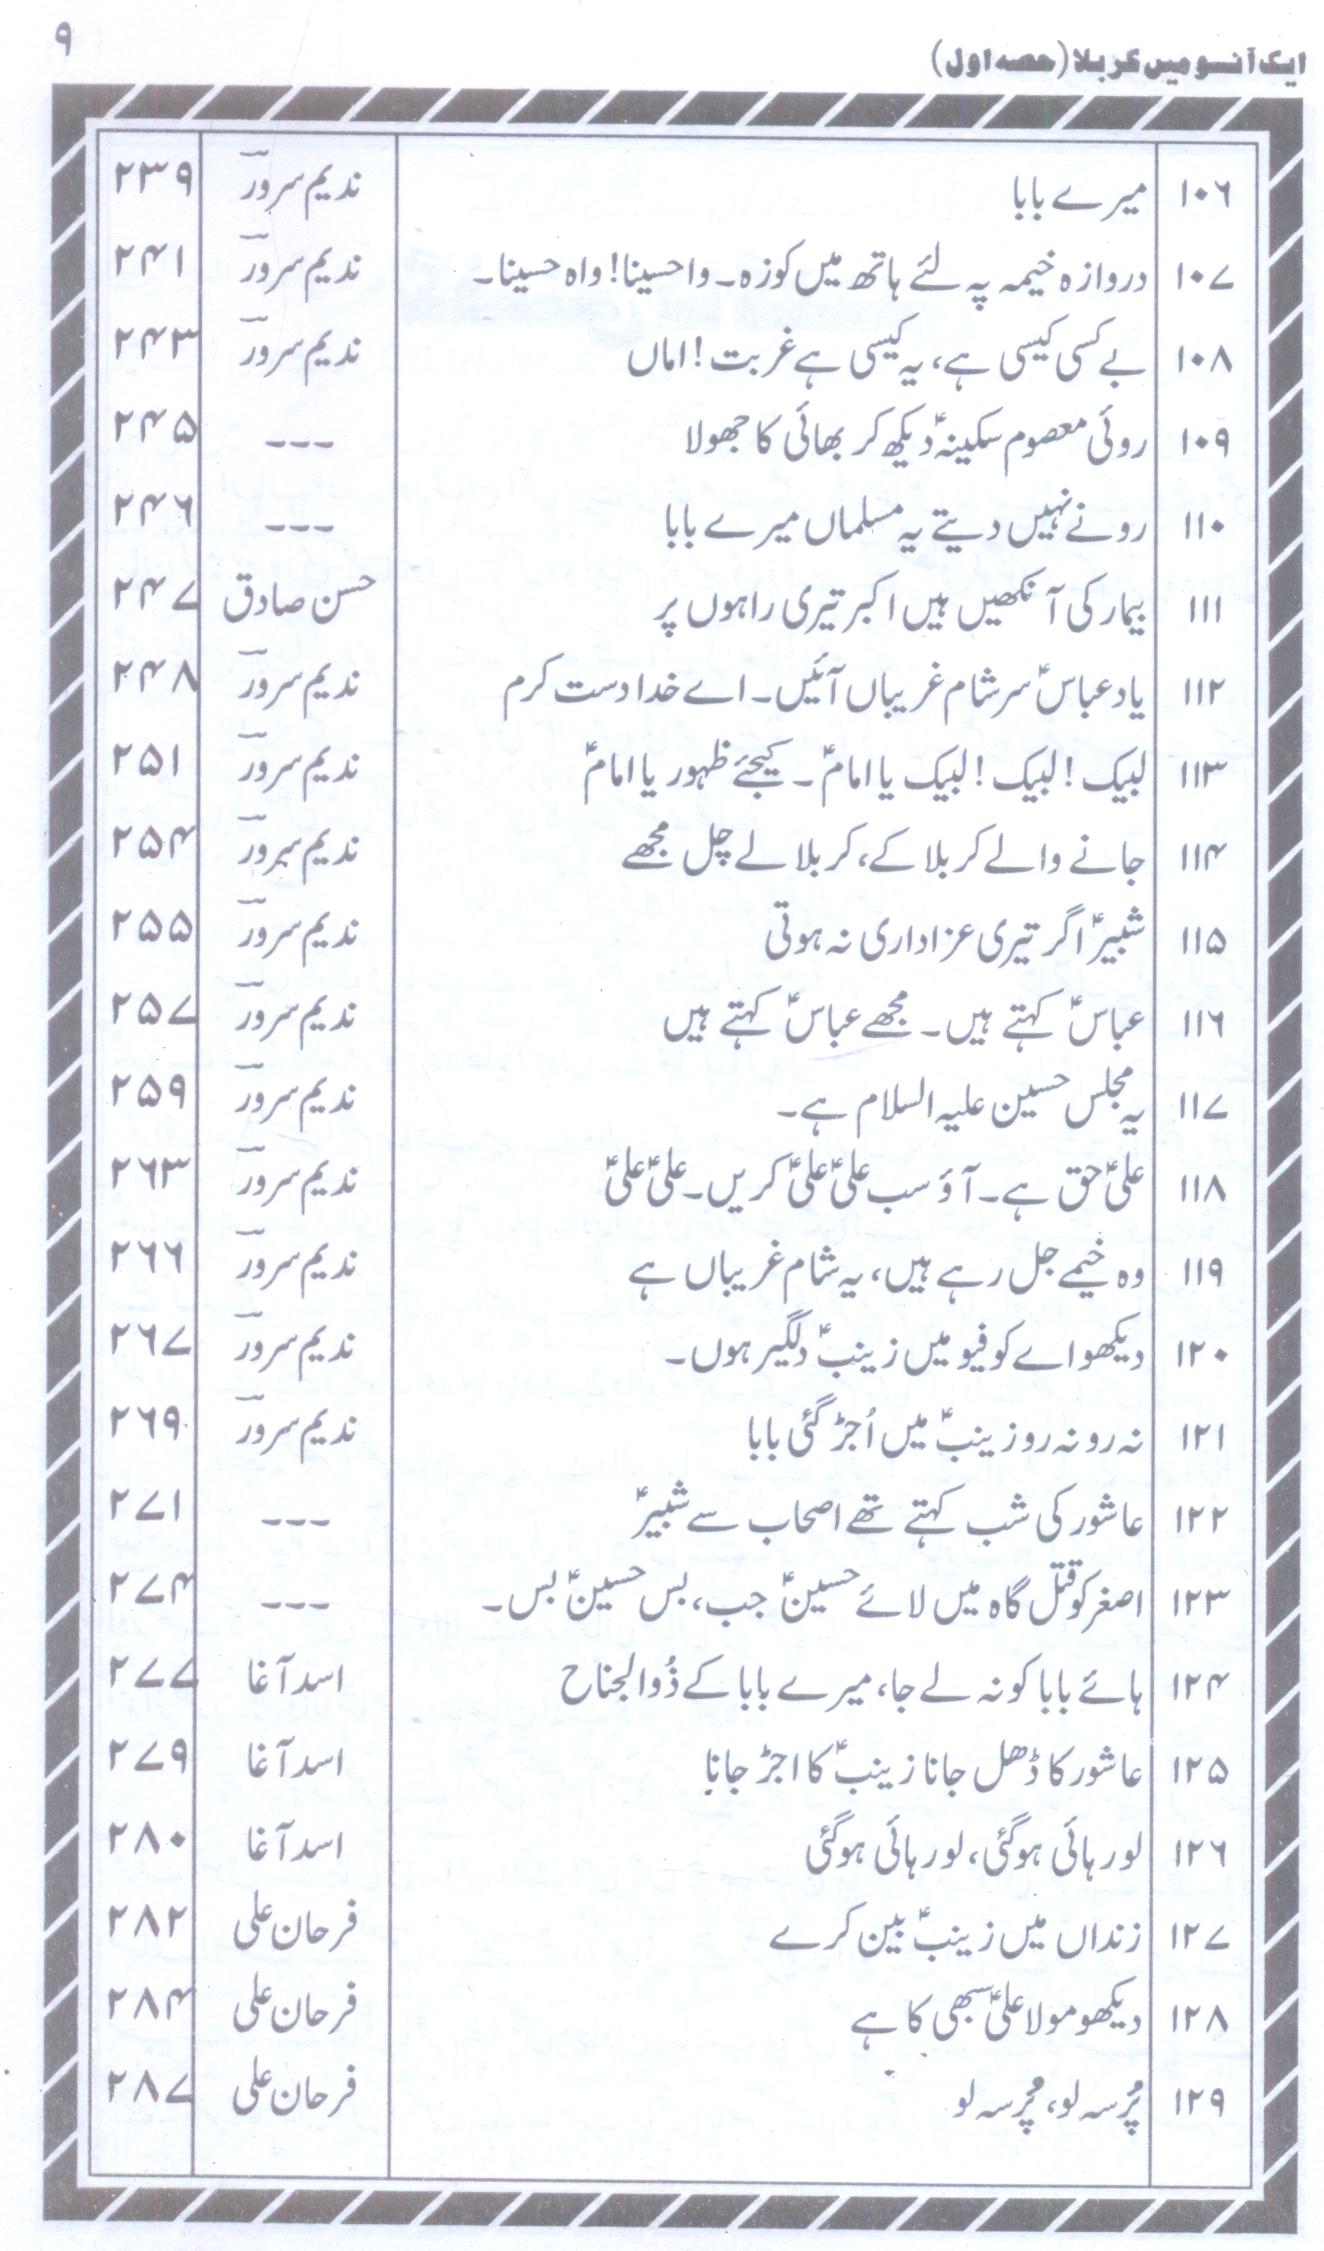 ایک آنسو میں کربلا (حصہ اول) ۹
۱۰۶ میرے بابا ندیم سرورؔ ۲۳۹
۱۰۷ دروازہ خیمہ پہ لئے ہاتھ میں کوزہ۔ واحسینا! واہ حسینا۔ ندیم سرورؔ ۲۴۱
۱۰۸ بے کسی کیسی ہے، یہ کیسی ہے غربت! اماں ندیم سرورؔ ۲۴۳
۱۰۹ روئی معصوم سکینہؑ دیکھ کر بھائی کا جھولا --- ۲۴۵
۱۱۰ رونے نہیں دیتے یہ مسلماں میرے بابا --- ۲۴۶
۱۱۱ بیمار کی آنکھیں ہیں اکبر تیری راہوں پر حسن صادق ۲۴۷
۱۱۲ یاد عباسؑ سر شام غریباں آئیں۔ اے خدا دست کرم ندیم سرورؔ ۲۴۸
۱۱۳ لبیک! لبیک! لبیک یا امامؑ۔ کیجئے ظہور یا امامؑ ندیم سرورؔ ۲۵۱
۱۱۴ جانے والے کربلا کے، کربلا لے چل مجھے ندیم سرورؔ ۲۵۴
۱۱۵ شبیرؑ اگر تیری عزاداری نہ ہوتی ندیم سرورؔ ۲۵۵
۱۱۶ عباسؑ کہتے ہیں۔ مجھے عباسؑ کہتے ہیں ندیم سرورؔ ۲۵۷
۱۱۷ یہ مجلس حسین علیہ السلام ہے۔ ندیم سرورؔ ۲۵۹
۱۱۸ علیؑ حق ہے۔ آؤ سب علیؑ علیؑ کریں۔ علیؑ علیؑ ندیم سرورؔ ۲۶۳
۱۱۹ وہ خیمے جل رہے ہیں، یہ شام غریباں ہے ندیم سرورؔ ۲۶۶
۱۲۰ دیکھو اے کوفیو میں زینبؑ دلگیر ہوں۔ ندیم سرورؔ ۲۶۷
۱۲۱ نہ رو نہ رو زینبؑ میں اُجڑ گئی بابا ندیم سرورؔ ۲۶۹
۱۲۲ عاشور کی شب کہتے تھے اصحاب سے شبیرؑ --- ۲۷۱
۱۲۳ اصغر کو قتل گاہ میں لائے حسینؑ جب، بس حسینؑ بس۔ --- ۲۷۴
۱۲۴ ہائے بابا کو نہ لے جا، میرے بابا کے ذُوالجناح اسد آغا ۲۷۷
۱۲۵ عاشور کا ڈھل جانا زینبؑ کا اجڑ جانا اسد آغا ۲۷۹
۱۲۶ لو رہائی ہوگئی، لو رہائی ہوگئی اسد آغا ۲۸۰
۱۲۷ زنداں میں زینبؑ بین کرے فرحان علی ۲۸۲
۱۲۸ دیکھو مولا علیؑ سبھی کا ہے فرحان علی ۲۸۴
۱۲۹ پُرسہ لو، پُرسہ لو فرحان علی ۲۸۷